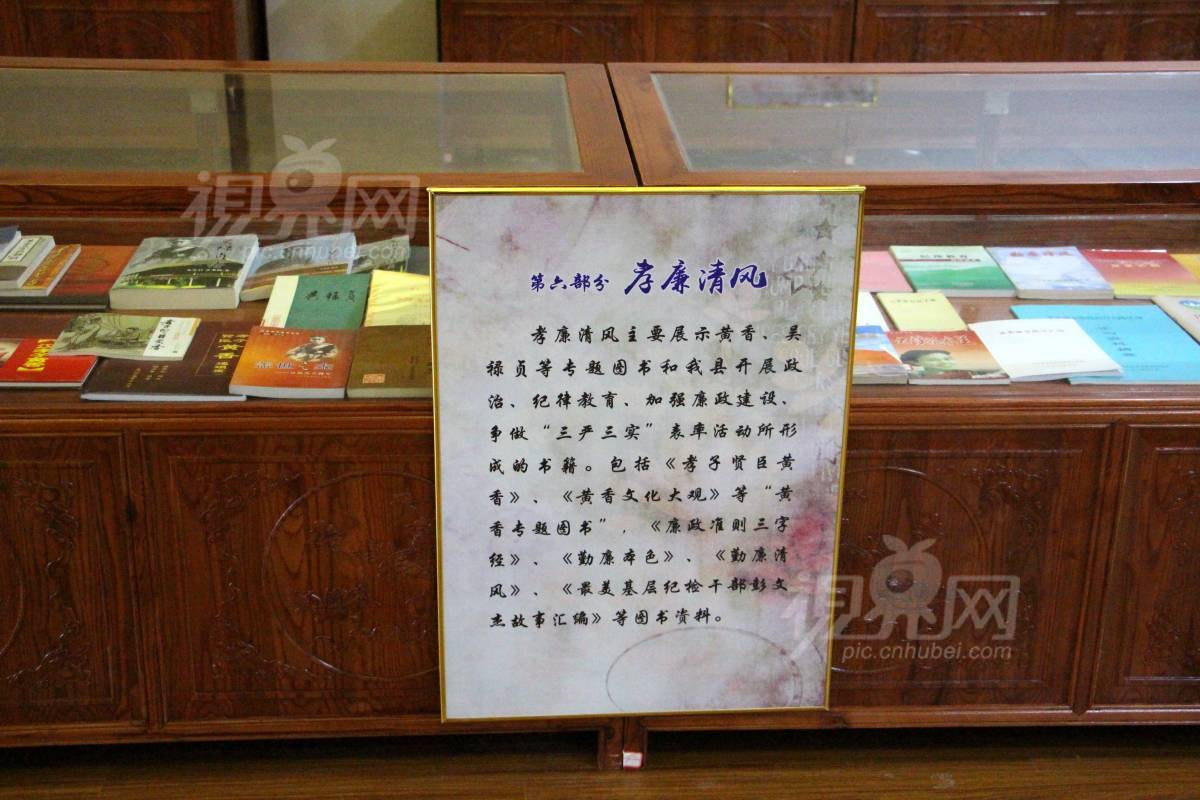 視界网
pic.cnhubei.com
第六部分 孝廉清风
孝廉清风主要展示黄香、吴
禄贞等专题图书和我县开展政
治、纪律教育、加强廉政建设、
争做“三严三实”表率活动所形
成的书籍。包括《孝子贤臣黄
香》、《黄香文化大观》等“黄
香专题图书”，《廉政准则三字
经》、《勤廉本色》、《勤廉清
风》、《最美基层纪检干部彭文
杰故事汇编》等图书资料。
吴禄贞
纪律教育
視界网
pic.cnhubei.com